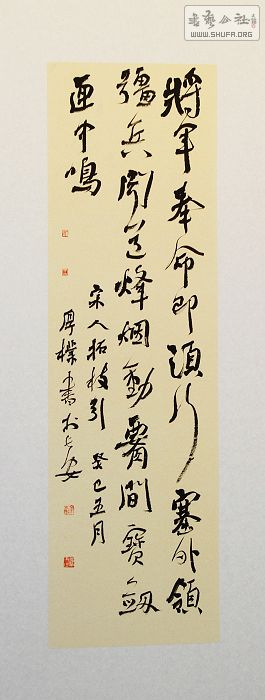 書藝公社
WWW.SHUFA.ORG
將軍奉命即須行塞外領
彊兵聞道烽烟動霄間寶劔
匣中鳴
宋人拓枝引癸巳五月
樸中書於上